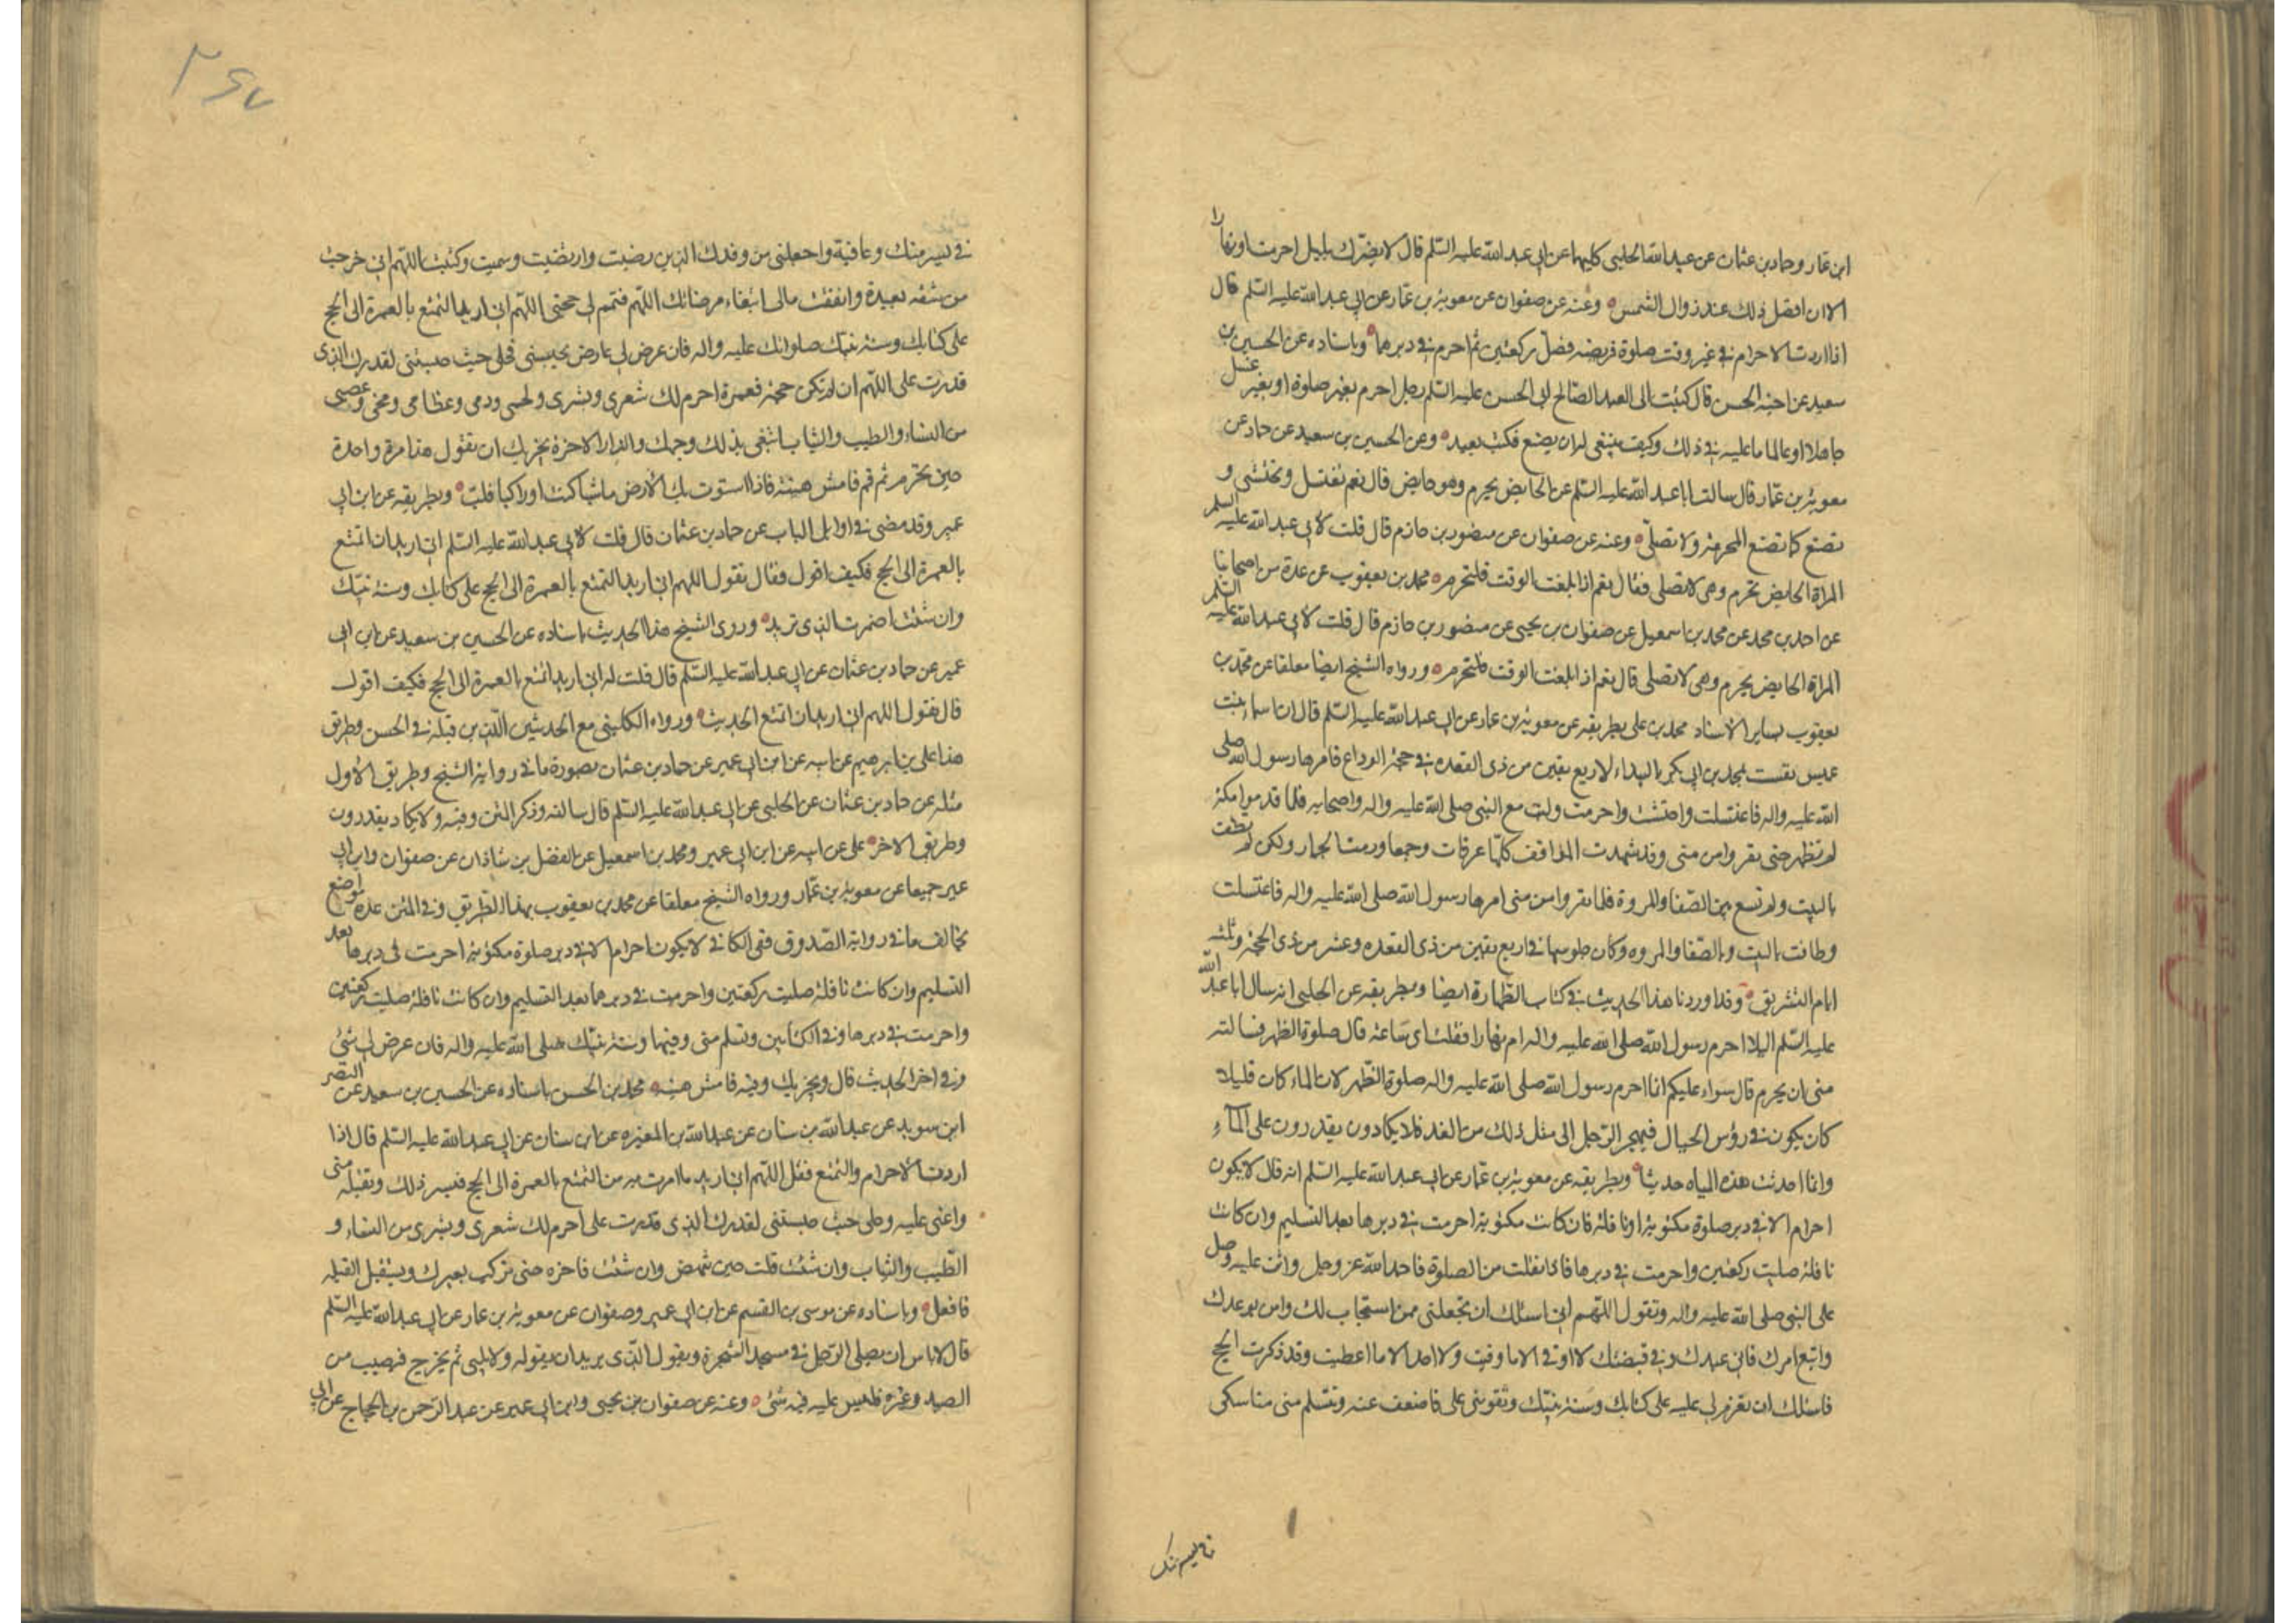 ابن عمار وحماد بن عثمان عن عبيد الله الحلبي كليهما عن ابي عبد الله عليه السلم قال لا يضرك بليل احرمت او نهارا
الا ان افضل ذلك عند زوال الشمس وعنه عن صفوان عن معوية بن عمار عن ابي عبد الله عليه السلم قال
اذا اردت الاحرام في غير وقت صلوة فريضة فصل ركعتين ثم احرم في دبرهما وباسناده عن الحسين بن
سعيد عن اخيه الحسن قال كتبت الى العبد الصالح ابي الحسن عليه السلم رجل احرم بغير صلوة او بغير غسل
جاهلا او عالما ما عليه في ذلك وكيف ينبغي له ان يصنع فكتب يعيد وعن الحسين بن سعيد عن حماد عن
معوية بن عمار قال سالت ابا عبد الله عليه السلم عن الحايض يحرم وهو حايض قال نعم تغتسل وتحتشي و
تصنع كما تصنع المحرمة ولا تصلي وعنه عن صفوان عن منصور بن حازم قال قلت لابي عبد الله عليه السلم
المراة الحايض تحرم وهي لا تصلي فقال نعم اذا بلغت الوقت فلتحرم محمد بن يعقوب عن عدة من اصحابنا
عن احمد بن محمد عن محمد بن اسمعيل عن صفوان بن يحيى عن منصور بن حازم قال قلت لابي عبد الله عليه السلم
المراة الحايض يحرم وهي لا تصلي قال نعم اذا بلغت الوقت فلتحرم ورواه الشيخ ايضا معلقا عن محمد بن
يعقوب بساير الاسناد محمد بن علي بطريقه عن معوية بن عمار عن ابي عبد الله عليه السلم قال ان اسماء بنت
عميس نفست بمحمد بن ابي بكر بالبيداء لاربع بقين من ذي القعده في حجة الوداع فامرها رسول الله صلى
الله عليه واله فاغتسلت واحتشت واحرمت ولبت مع النبي صلى الله عليه واله واصحابه فلما قدموا مكة
لم تطهر حتى نفروا من منى وقد شهدت المواقف كلها عرفات وجمعا ورمت الجمار ولكن لم تطف
بالبيت ولم تسع بين الصفا والمروة فلما نفروا من منى امرها رسول الله صلى الله عليه واله فاغتسلت
وطافت بالبيت وبالصفا والمروه وكان جلوسها في اربع بقين من ذي القعده وعشر من ذي الحجة وثلثه
ايام التشريق وقد اوردنا هذا الحديث في كتاب الطهارة ايضا وبطريقه عن الحلبي انه سال ابا عبد الله
عليه السلم اليلا احرم رسول الله صلى الله عليه واله ام نهارا فقلت اي ساعة قال صلوة الظهر فسالته
متى ان يحرم قال سواء عليكم انما احرم رسول الله صلى الله عليه واله صلوة الظهر لان الماء كان قليلا
كان يكون في رؤس الجبال فيهجر الرجل الى مثل ذلك من الغد فلا يكادون يقدرون على الماء
وانما احدثت هذه المياه حديثا وبطريقه عن معوية بن عمار عن ابي عبد الله عليه السلم انه قال لا يكون
احرام الا في دبر صلوة مكتوبة او نافلة فان كانت مكتوبة احرمت في دبرها بعد التسليم وان كانت
نافلة صليت ركعتين واحرمت في دبرها فاذا انفتلت من الصلوة فاحمد الله عز وجل واثن عليه وصل
على النبي صلى الله عليه واله وتقول اللهم اني اسئلك ان تجعلني ممن استجاب لك وامن بوعدك
واتبع امرك فاني عبدك وفي قبضتك لا اوقى الا ما وقيت ولا اخذ الا ما اعطيت وقد ذكرت الحج
فاسئلك ان تعزم لي عليه على كتابك وسنة نبيك وتقويني على ما ضعفت عنه وتتسلم مني مناسكي
في يسر منك
٢٤٧
في يسر منك وعافية واجعلني من وفدك الذين رضيت وارتضيت وسميت وكتبت اللهم اني خرجت
من شقه بعيدة وانفقت مالي ابتغاء مرضاتك اللهم فتمم لي حجتي اللهم اني اريد التمتع بالعمرة الى الحج
على كتابك وسنة نبيك صلواتك عليه واله فان عرض لي عارض يحبسني فحلني حيث حبستني لقدرك الذي
قدرت علي اللهم ان لم تكن حجة فعمرة احرم لك شعري وبشري ولحمي ودمي وعظامي ومخي وعصبي
من النساء والطيب والثياب ابتغي بذلك وجهك والدار الاخرة يجزيك ان تقول هذا مرة واحدة
حين تحرم ثم قم فامش هنيئة فاذا استوت بك الارض ماشيا كنت او راكبا فلب وبطريقه عن ابن ابي
عمير وقد مضى في اوايل الباب عن حماد بن عثمان قال قلت لابي عبد الله عليه السلم اني اريد ان اتمتع
بالعمرة الى الحج فكيف اقول فقال تقول اللهم اني اريد التمتع بالعمرة الى الحج على كتابك وسنة نبيك
وان شئت اضمرت الذي تريد وروى الشيخ هذا الحديث باسناده عن الحسين بن سعيد عن ابن ابي
عمير عن حماد بن عثمان عن ابي عبد الله عليه السلم قال قلت له اني اريد اتمتع بالعمرة الى الحج فكيف اقول
قال تقول اللهم اني اريد ان اتمتع الحديث ورواه الكليني مع الحديثين اللذين قبله في الحسن وطريق
هذا علي بن ابرهيم عن ابيه عن ابن ابي عمير عن حماد بن عثمان بصورة ما في رواية الشيخ وطريق الاول
مثله عن حماد بن عثمان عن الحلبي عن ابي عبد الله عليه السلم قال سالته وذكر المتن وفيه ولا يكاد يقدرون
وطريق الاخر علي عن ابيه عن ابن ابي عمير ومحمد بن اسمعيل عن الفضل بن شاذان عن صفوان وابن ابي
عمير جميعا عن معوية بن عمار ورواه الشيخ معلقا عن محمد بن يعقوب بهذا الطريق وفي المتن عدة مواضع
تخالف ما في رواية الصدوق ففي الكافي لا يكون احرام الا في دبر صلوة مكتوبة احرمت في دبرها بعد
التسليم وان كانت نافلة صليت ركعتين واحرمت في دبرهما بعد التسليم وان كانت نافلة صليت ركعتين
واحرمت في دبرها وفي الكتابين وتسلم مني وفيهما وسنة نبيك صلى الله عليه واله فان عرض لي شئ
وفي اخر الحديث قال ويجزيك وفيه فامش هنيه محمد بن الحسن باسناده عن الحسين بن سعيد عن النضر
ابن سويد عن عبد الله بن سنان عن عبد الله بن المغيره عن ابن سنان عن ابي عبد الله عليه السلم قال اذا
اردت الاحرام والتمتع فقل اللهم اني اريد ما امرت به من التمتع بالعمرة الى الحج فيسر ذلك وتقبله مني
واعني عليه وحلني حيث حبستني لقدرك الذي قدرت علي احرم لك شعري وبشري من النساء و
الطيب والثياب وان شئت قلت حين تنهض وان شئت فاخره حتى تركب بعيرك ويستقبل القبله
فافعل وباسناده عن موسى بن القسم عن ابن ابي عمير وصفوان عن معوية بن عمار عن ابي عبد الله عليه السلم
قال لا باس ان يصلي الرجل في مسجد الشجرة ويقول الذي يريد ان يقوله ولا يلبي ثم يخرج فيصيب من
الصيد وغيره فليس عليه فيه شئ وعنه عن صفوان بن يحيى وابن ابي عمير عن عبد الرحمن بن الحجاج عن ابي